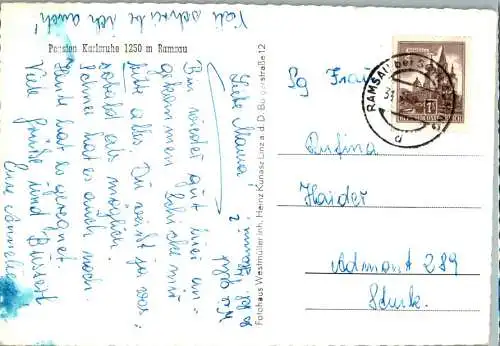 Viel schreibe ich auch!
Pension Karlsruhe 1250 m Ramsau
Liebe Mama!
Bin wieder gut hier an-
gekommen. Schicke mir
bitte alles. Du weißt ja was
sobald als möglich.
Schnee hat es auch noch.
Heute hat es geregnet.
Viele Grüße und Busserl
Eure Annelies
Wie geht
es Hanni?
Fotohaus Westmüller inh. Heinz Kunasz Linz a. d. D. Bürgerstraße 12
RAMSAU bei
Sg Frau
Rufina
Haider
Admont 289
Stmk.